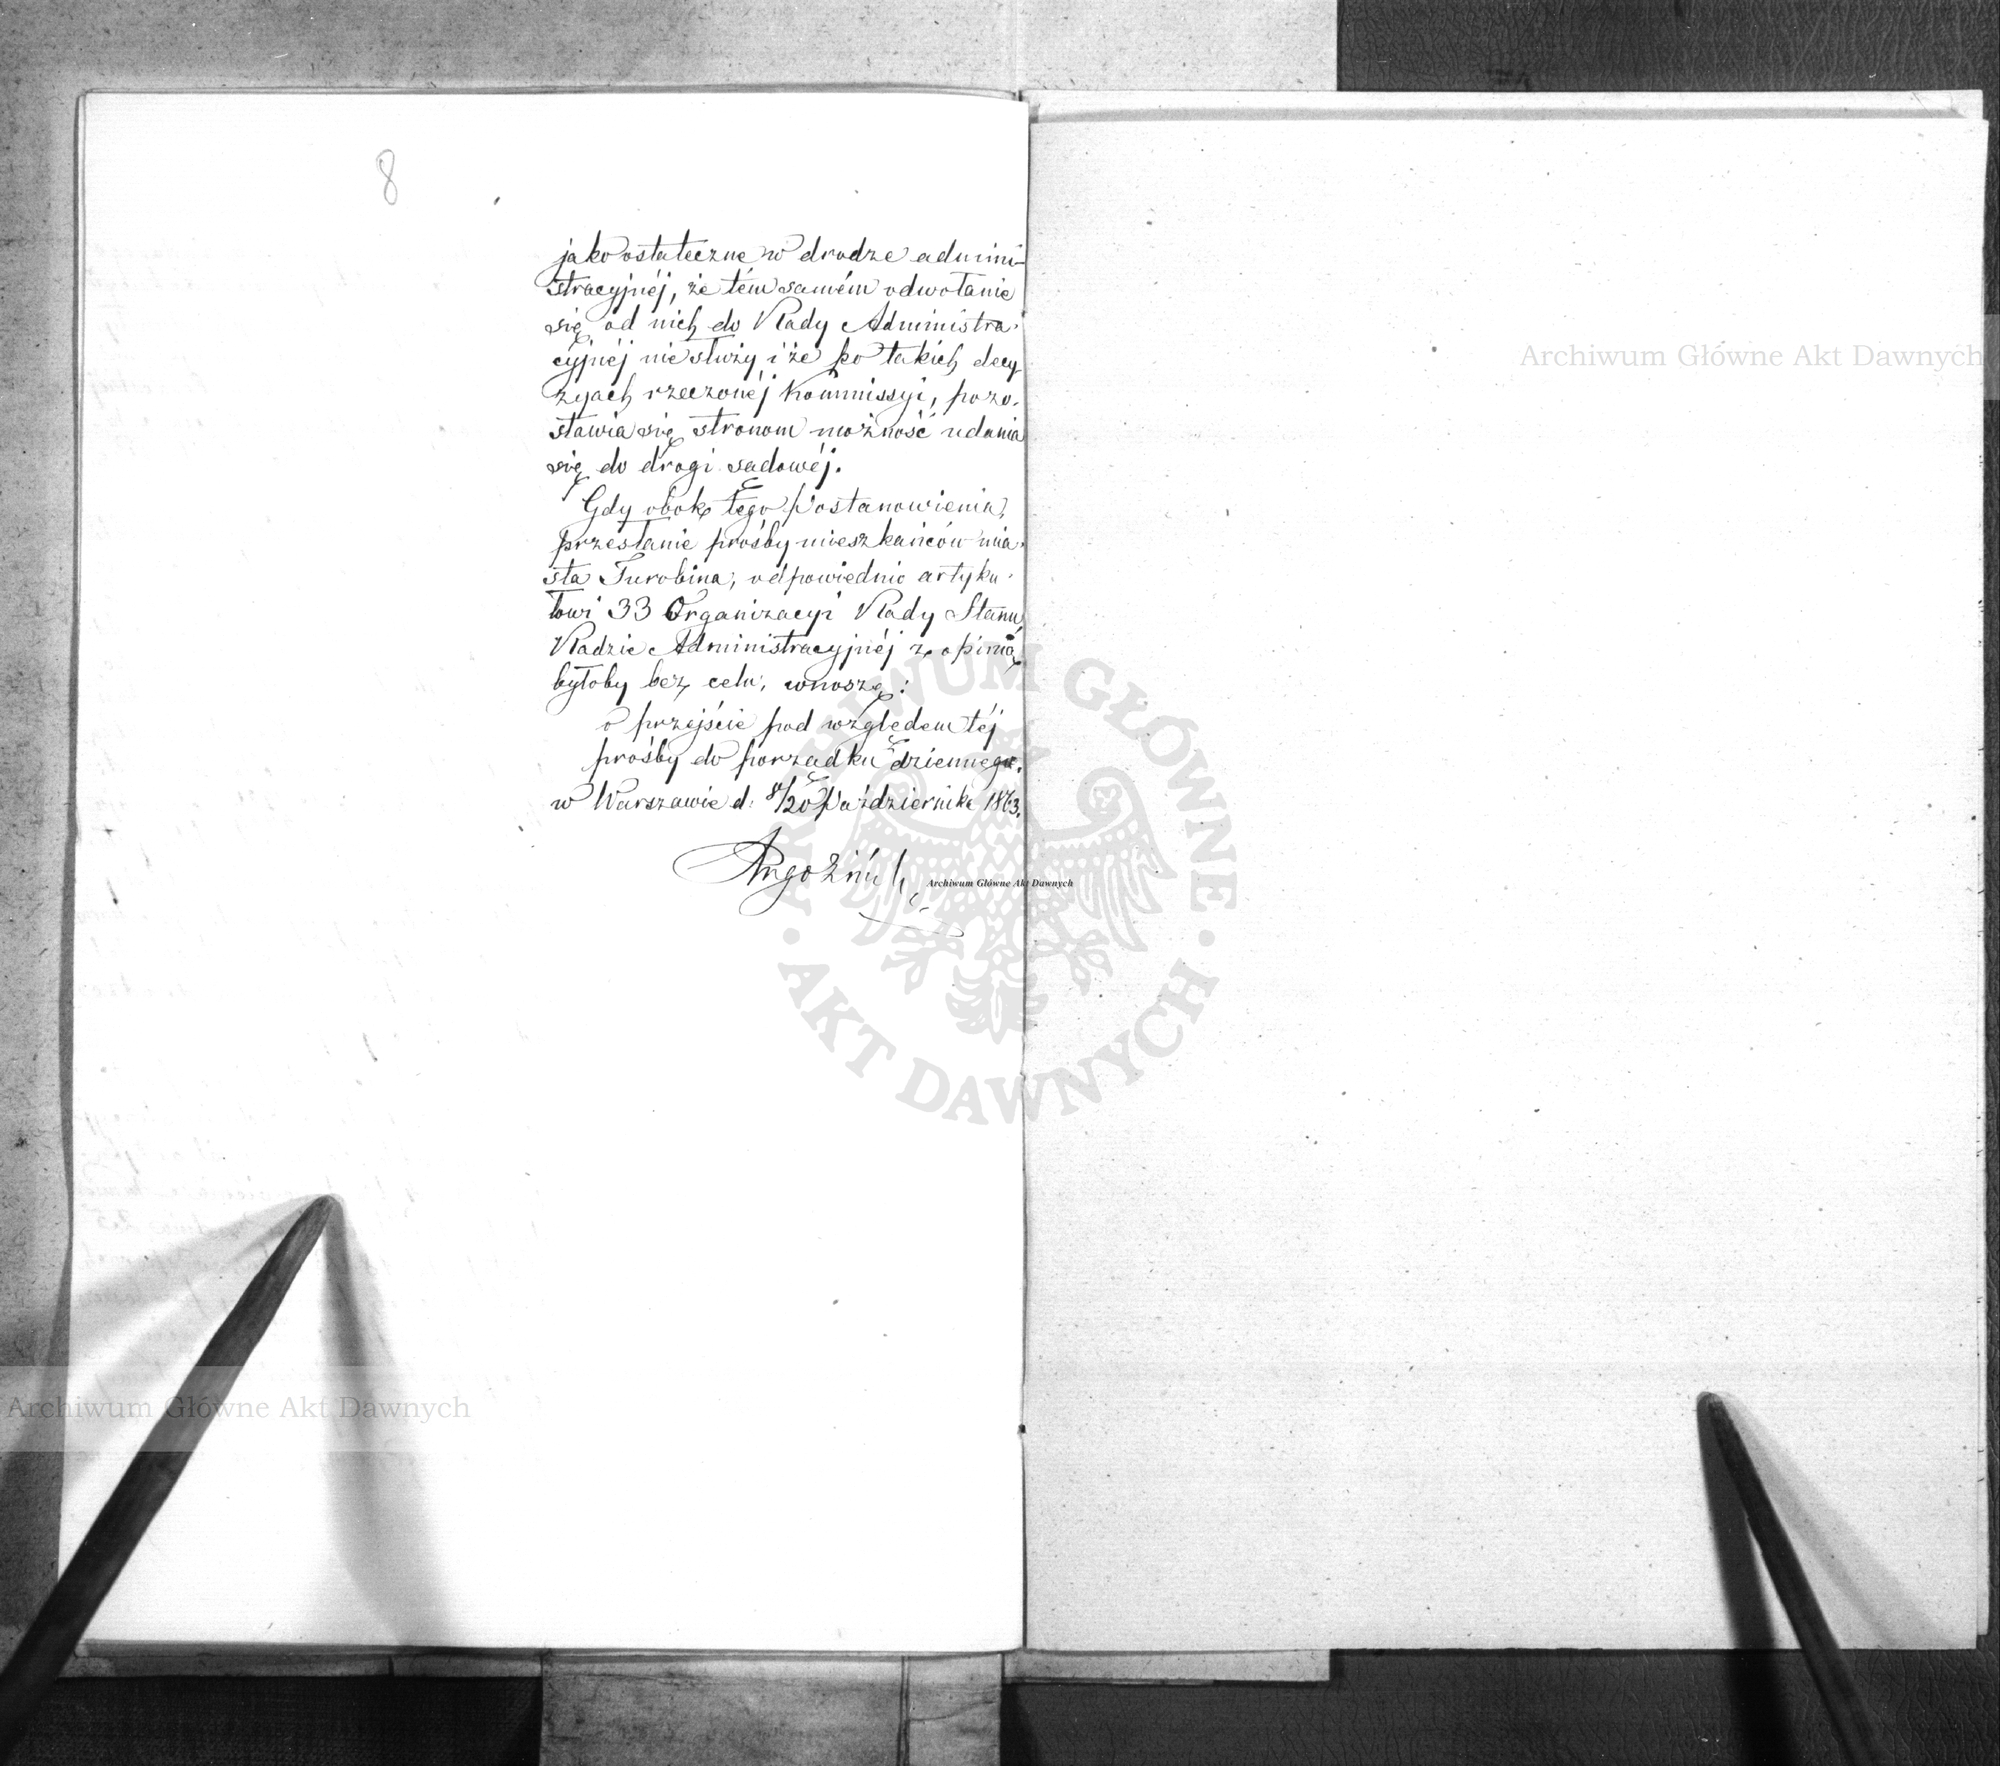 8
jako ostateczne w drodze admini-
stracyjnéj, że tém samém odwołanie
się od nich do Rady Administra-
cyjnéj nie służy i że po takich decy-
zyach rzeczonéj Kommissyi, pozo-
stawia się stronom możność udania
się do drogi sądowéj.
Gdy obok tego Postanowienia,
przesłanie prośby mieszkańców mia-
sta Turobina, odpowiednio artyku-
łowi 33 Organizacyi Rady Stanu,
Radzie Administracyjnéj z opinią
byłoby bez celu, wnoszę:
o przejście pod względem téj
prośby do porządku dziennego.
w Warszawie d. 8/20 Października 1863.
Archiwum Główne Akt Dawnych
ARCHIWUM GŁÓWNE
AKT DAWNYCH
Archiwum Główne Akt Dawnych
Archiwum Główne Akt Dawnych